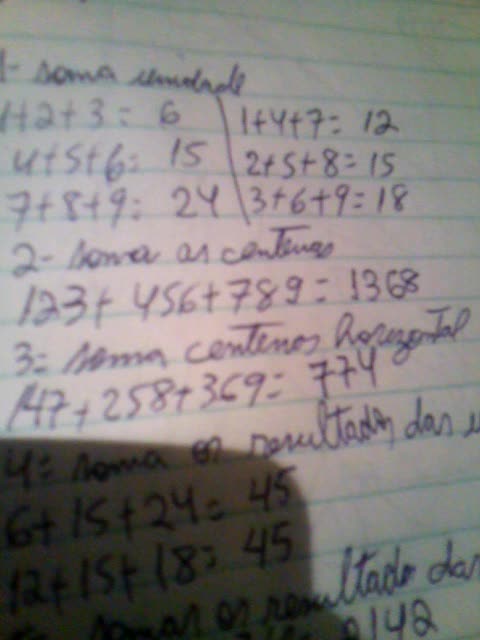 1- soma unidade
1+2+3= 6 | 1+4+7= 12
4+5+6= 15 | 2+5+8=15
7+8+9= 24 | 3+6+9=18
2- soma as centenas
123+ 456+789= 1368
3= soma centenas horizontal
147+258+369= 774
4= soma os resultados das
6+15+24= 45
12+15+18= 45
somar os resultado das
2142